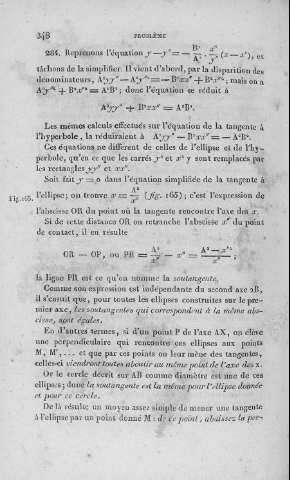 348 PROBLÈME
284. Reprenons l'équation y — y″ = — B²/A² · x″/y″ (x — x″), et
tâchons de la simplifier. Il vient d'abord, par la disparition des
dénominateurs, A²yy″ — A²y″² = — B²xx″ + B²x″²; mais on a
A²y″² + B²x″² = A²B²; donc l'équation se réduit à
A²yy″ + B²xx″ = A²B².
Les mêmes calculs effectués sur l'équation de la tangente à
l'hyperbole, la réduiraient à A²yy″ — B²xx″ = — A²B².
Ces équations ne diffèrent de celles de l'ellipse et de l'hy-
perbole, qu'en ce que les carrés y² et x² y sont remplacés par
les rectangles yy″ et xx″.
Soit fait y = 0 dans l'équation simplifiée de la tangente à
Fig. 165. l'ellipse; on trouve x = A²/x″ (fig. 165); c'est l'expression de
l'abscisse OR du point où la tangente rencontre l'axe des x.
Si de cette distance OR on retranche l'abscisse x″ du point
de contact, il en résulte
OR — OP, ou PR = A²/x″ — x″ = A² — x″²/x″,
la ligne PR est ce qu'on nomme la soutangente.
Comme son expression est indépendante du second axe 2B,
il s'ensuit que, pour toutes les ellipses construites sur le pre-
mier axe, les soutangentes qui correspondent à la même abs-
cisse, sont égales.
En d'autres termes, si d'un point P de l'axe AX, on élève
une perpendiculaire qui rencontre ces ellipses aux points
M, M′,... et que par ces points on leur mène des tangentes,
celles-ci viendront toutes aboutir au même point de l'axe des x.
Or le cercle décrit sur AB comme diamètre est une de ces
ellipses; donc la soutangente est la même pour l'ellipse donnée
et pour ce cercle.
De là résulte un moyen assez simple de mener une tangente
à l'ellipse par un point donné M : de ce point, abaissez la per-